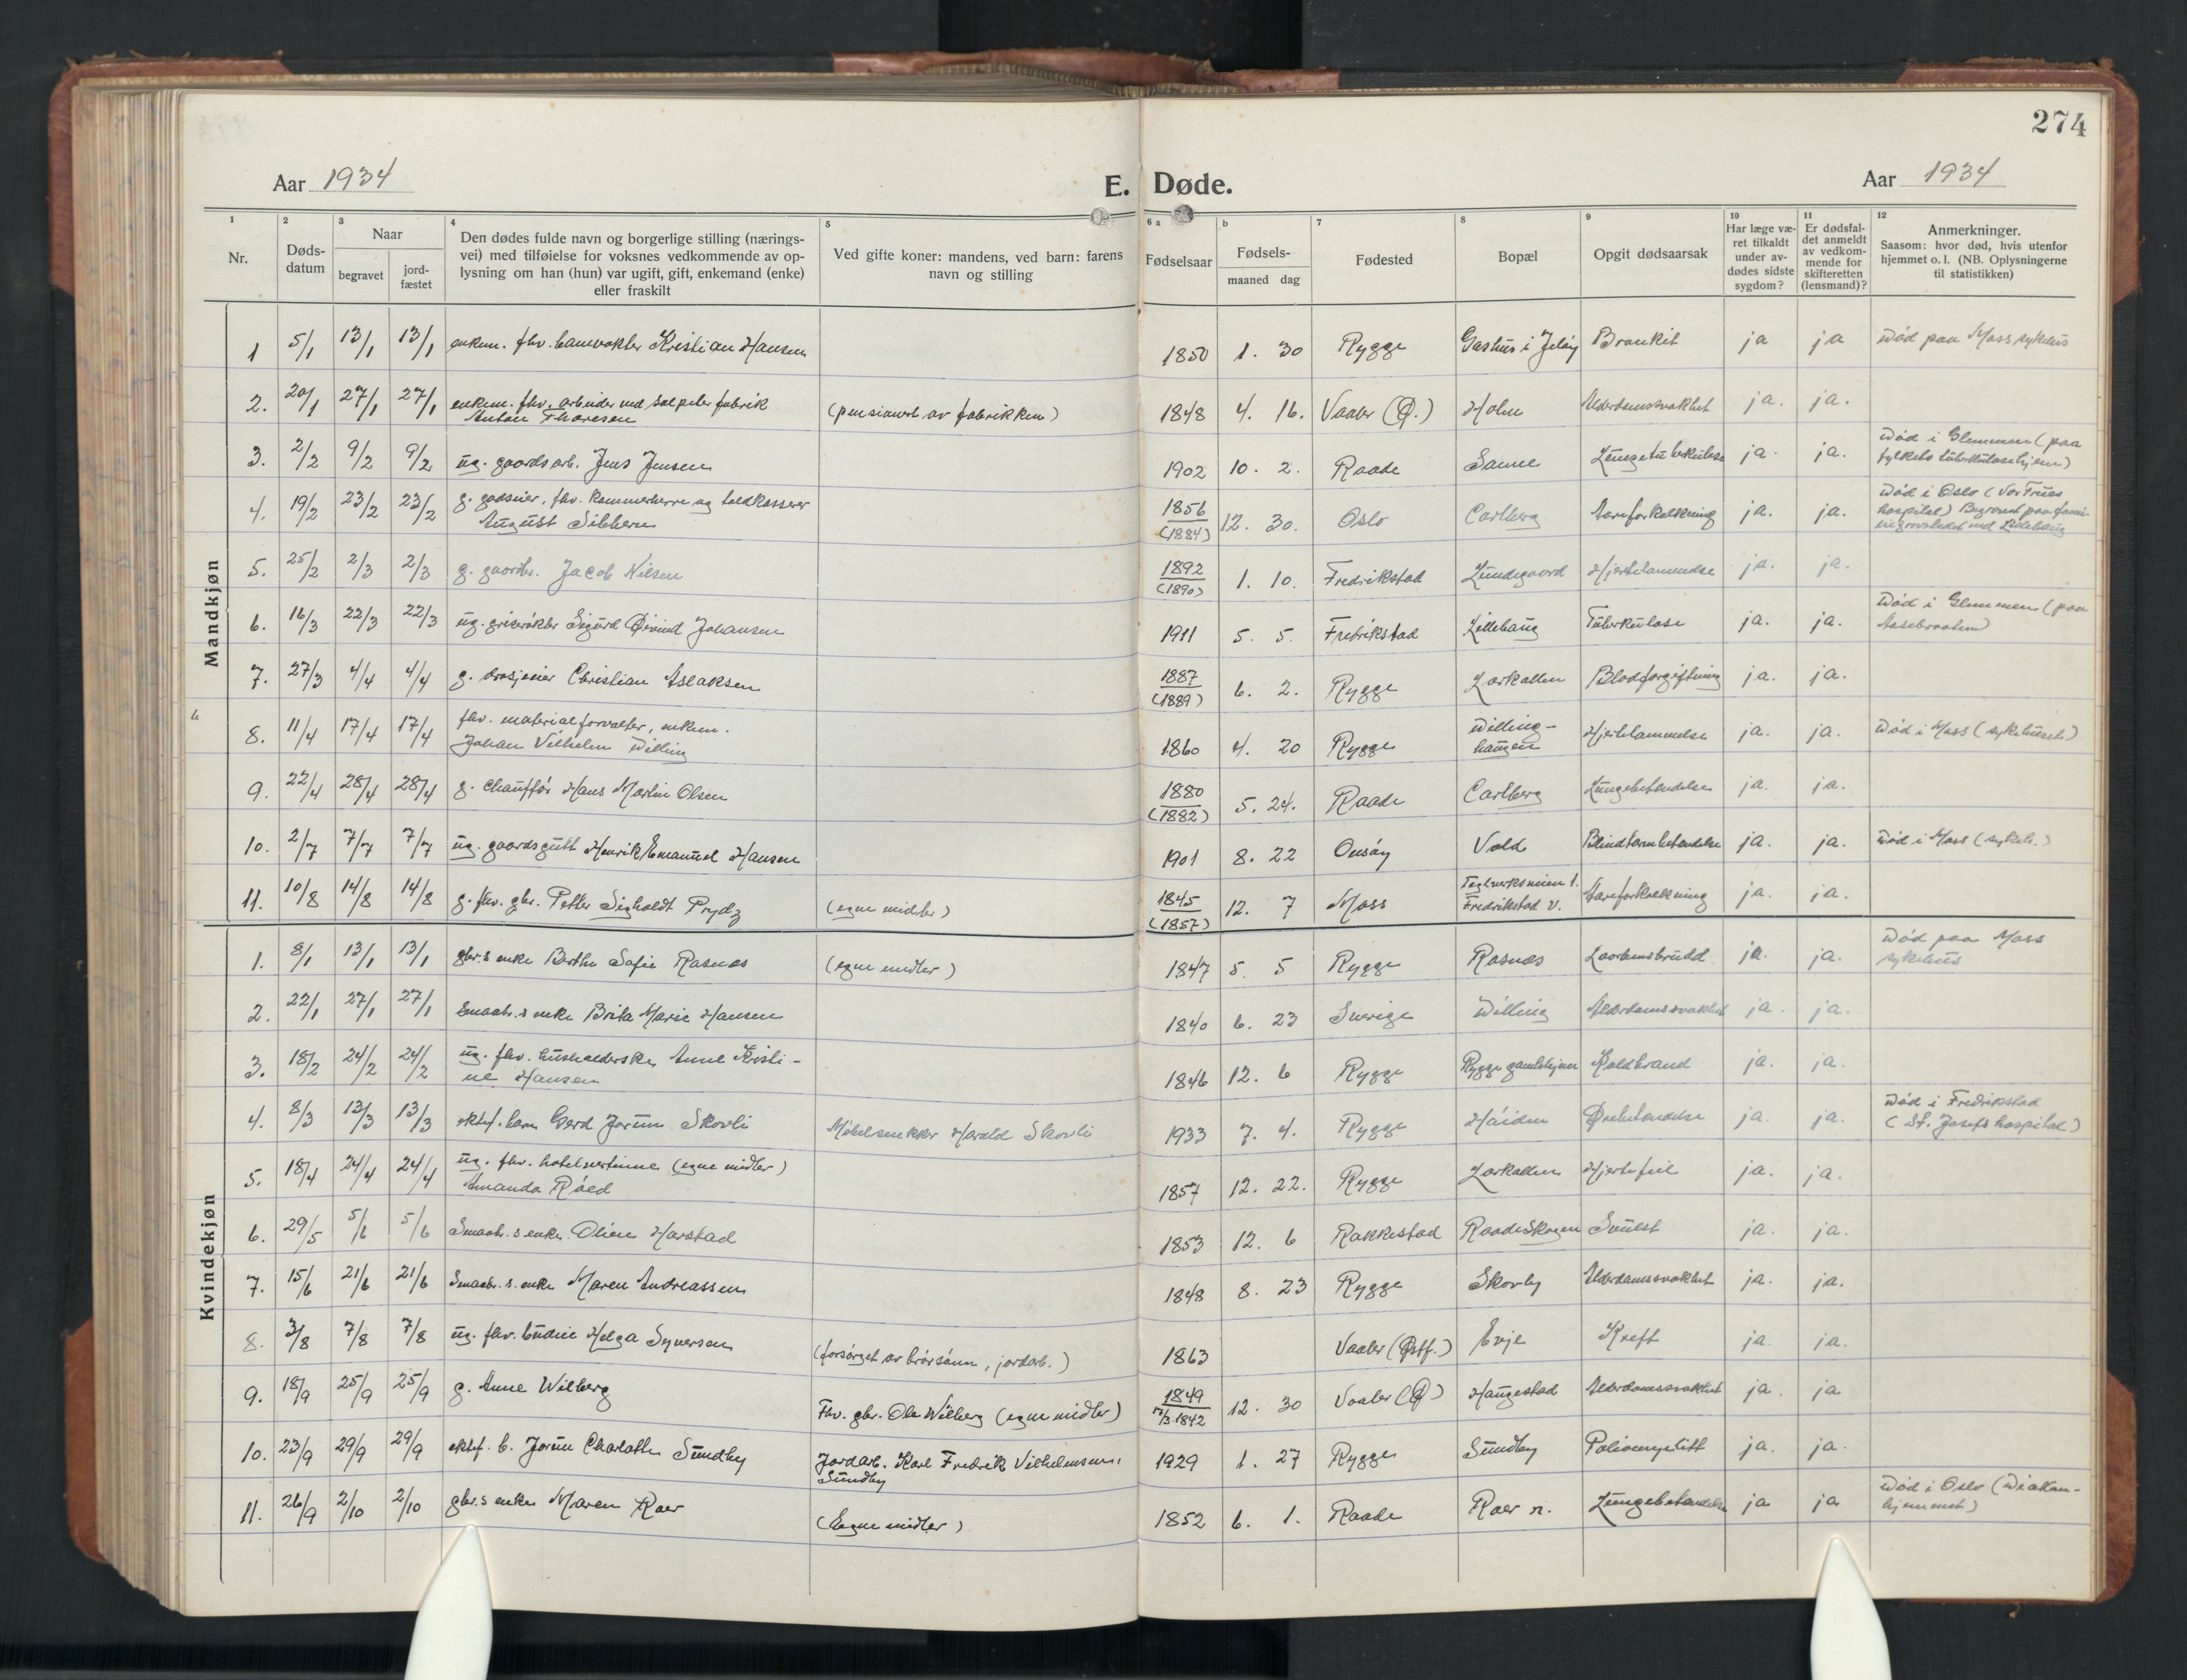 274
Aar 1934 E. Døde. Aar 1934
1 2 3 4 5 6 a b 7 8 9 10 11 12
Nr.
Døds-
datum
Naar
begravet
jord-
fæstet
Den dødes fulde navn og borgerlige stilling (nærings-
vei) med tilføielse for voksnes vedkommende av op-
lysning om han (hun) var ugift, gift, enkemand (enke)
eller fraskilt
Ved gifte koner: mandens, ved barn: farens
navn og stilling
Fødselsaar
Fødsels-
maaned dag
Fødested
Bopæl
Opgit dødsaarsak
Har læge væ-
ret tilkaldt
under av-
dødes sidste
sygdom?
Er dødsfal-
det anmeldt
av vedkom-
mende for
skifteretten
(lensmand)?
Anmerkninger.
Saasom: hvor død, hvis utenfor
hjemmet o. l. (NB. Oplysningerne
til statistikken)
Mandkjøn
1 5/1 13/1 13/1 enkem. fhv. banevokter Kristian Hansen 1850 1. 30 Rygge i Jeløy Bronkit ja ja Død paa Moss sykehus
2. 20/1 27/1 27/1 enkem. fhv. arbeider ved salpeter fabrik
Anton Thoresen (pensionert av fabrikken) 1848 4. 16. Vaaler (Ø.) Holm Alderdomssvakhet ja. ja.
3. 2/2 9/2 9/2 ug. gaardsarb. Jens Jensen 1902 10. 2. Raade Sanne Lungetuberkulose ja. ja. Død i Glemmen (paa
fylkets tuberkulosehjem)
4. 19/2 23/2 23/2 g. godseier, fhv. kammerherre og toldkasserer
August Sibbern 1856
(1884) 12. 30. Oslo Carlberg Aareforkalkning ja. ja. Død i Oslo (Vor Frues
hospital) Begravet paa fami-
liegravstedet ved Lillehaug
5. 25/2 2/3 2/3 g. gaardbr. Jacob Nilsen 1892
(1890) 1. 10. Fredrikstad Lundegaard Hjertelammelse ja. ja.
6. 16/3 22/3 22/3 ug. griserøkter Sigurd Øivind Johansen 1911 5. 5. Fredrikstad Lillehaug Tuberkulose ja. ja. Død i Glemmen (paa
Aasebraaten)
7. 27/3 4/4 4/4 g. drosjeeier Christian Aslaksen 1887
(1889) 6. 2. Rygge Larkollen Blodforgiftning ja. ja.
8. 11/4 17/4 17/4 fhv. materialforvalter, enkem.
Johan Vilhelm Dilling 1860 4. 20 Rygge Dilling-
haugen Hjertelammelse ja. ja. Død i Moss (sykehuset)
9. 22/4 28/4 28/4 g. chauffør Hans Martin Olsen 1880
(1882) 5. 24. Raade Carlberg Lungebetendelse ja. ja.
10. 2/7 7/7 7/7 ug. gaardsgutt Henrik Emanuel Hansen 1901 8. 22 Onsøy Vold Blindtarmbetendelse ja. ja. Død i Moss (sykeh.)
11. 10/8 14/8 14/8 g. fhv. gbr. Petter Sigholdt Prydz (egne midler) 1845
(1857) 12. 7 Moss Teglverksveien 1.
Fredrikstad V. Aareforkalkning ja. ja.
Kvindekjøn
1. 8/1 13/1 13/1 gbr.s enke Berthe Sofie Rosnæs (egne midler) 1847 5. 5 Rygge Rosnæs Laarbensbrudd ja. ja. Død paa Moss
sykehus
2. 22/1 27/1 27/1 Smaabr.s enke Brita Marie Hansen 1840 6. 23 Sverige Dilling Alderdomssvakhet ja. ja.
3. 18/2 24/2 24/2 ug. fhv. husholderske Anne Kristi-
ne Hansen 1846 12. 6 Rygge Rygge gamlehjem Koldbrand ja. ja.
4. 8/3 13/3 13/3 ektef. barn Gerd Jorun Skovli Møbelsnekker Harald Skovli 1933 7. 4. Rygge Høiden Ørebetendelse ja. ja. Død i Fredrikstad
(St. Josefs hospital)
5. 18/4 24/4 24/4 ug. fhv. hotelvertinne (egne midler)
Amanda Røed 1857 12. 22. Rygge Larkollen Hjertefeil ja. ja.
6. 29/5 5/6 5/6 Smaabr.s enke. Oline Harstad 1853 12. 6 Rakkestad Raadeskogen Svulst ja. ja.
7. 15/6 21/6 21/6 Smaabr.s enke Maren Andreassen 1848 8. 23 Rygge Skovly Alderdomssvakhet ja. ja.
8. 3/8 7/8 7/8 ug. fhv. budeie Helga Syversen (forsørget av brorsønn, jordarb.) 1863 Vaaler (Østf.) Evje Kreft ja. ja.
9. 18/9 25/9 25/9 g. Anne Wilberg Fhv. gbr. Ole Wilberg (egne midler) 1849
17/3 1842 12. 30 Vaaler (Ø) Haugestad Alderdomssvakhet ja. ja
10. 23/9 29/9 29/9 ektef. b. Jorun Charlotte Sundby Jordarb. Karl Fredrik Vilhelmsen,
Sundby 1929 1. 27 Rygge Sundby Poliomyelitt ja. ja.
11. 26/9 2/10 2/10 gbr.s enke Maren Roer (Egne midler) 1852 6. 1. Raade Roer n. Lungebetendelse ja ja Død i Oslo (Diakon-
hjemmet)